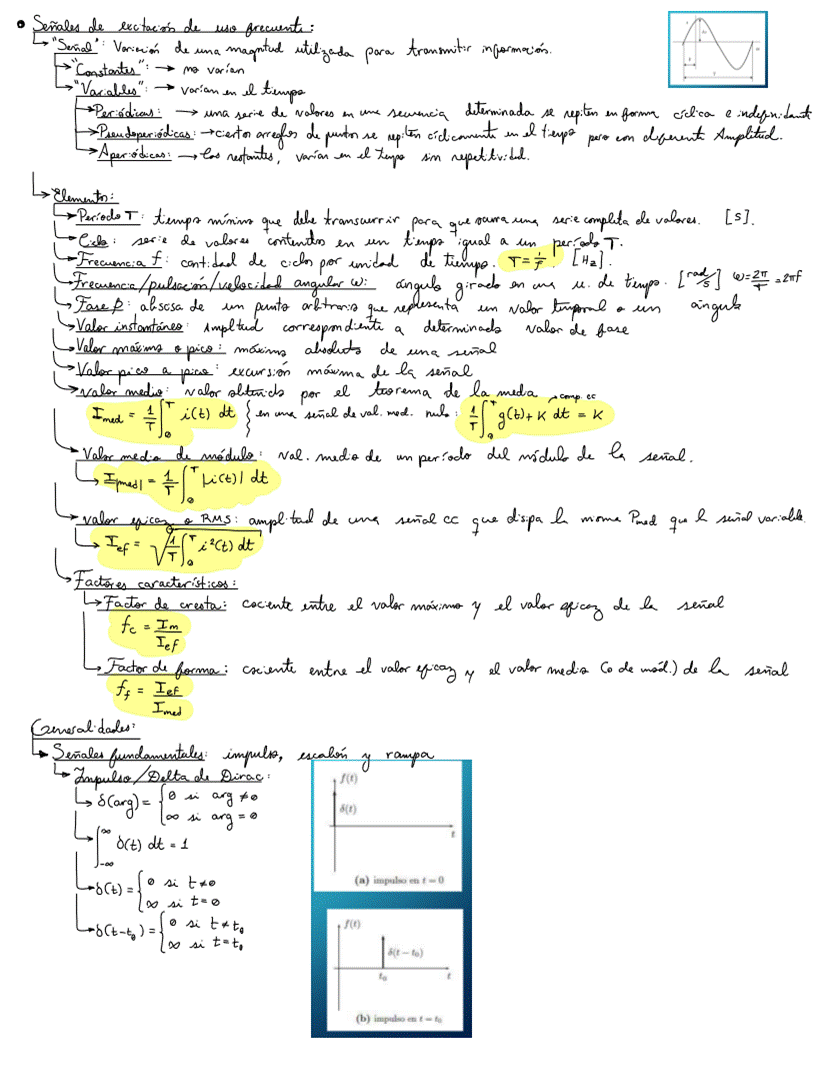 • Señales de excitación de uso frecuente:
"Señal": Variación de una magnitud utilizada para transmitir información.
"Constantes": → no varían
"Variables": → varían en el tiempo
Periódicas: → una serie de valores en una secuencia determinada se repiten en forma cíclica e indefinidamente
Pseudoperiódicas: → ciertos arreglos de puntos se repiten cíclicamente en el tiempo pero con diferente Amplitud.
Aperiódicas: → Los restantes, varían en el tiempo sin repetitividad.
Elementos:
Período T: tiempo mínimo que debe transcurrir para que ocurra una serie completa de valores. [s].
Ciclo: serie de valores contenidos en un tiempo igual a un período T.
Frecuencia f: cantidad de ciclos por unidad de tiempo. T = 1/f. [Hz].
Frecuencia/pulsación/velocidad angular ω: ángulo girado en una u. de tiempo. [rad/s] ω = 2π/T = 2πf
Fase β: abscisa de un punto arbitrario que representa un valor temporal o un ángulo
Valor instantáneo: amplitud correspondiente a determinado valor de fase
Valor máximo o pico: máximo absoluto de una señal
Valor pico a pico: excursión máxima de la señal
Valor medio: valor obtenido por el teorema de la media
comp. cc
I_med = 1/T ∫₀ᵀ i(t) dt } en una señal de val. med. nulo: 1/T ∫₀ᵀ g(t) + K dt = K
Valor medio de módulo: val. medio de un período del módulo de la señal.
I|med| = 1/T ∫₀ᵀ |i(t)| dt
Valor eficaz o RMS: amplitud de una señal cc que disipa la misma Pmed que la señal variable.
I_ef = √(1/T ∫₀ᵀ i²(t) dt)
Factores característicos:
Factor de cresta: cociente entre el valor máximo y el valor eficaz de la señal
f_c = I_m / I_ef
Factor de forma: cociente entre el valor eficaz y el valor medio (o de mód.) de la señal
f_f = I_ef / I_med
Generalidades:
Señales fundamentales: impulso, escalón y rampa
Impulso/Delta de Dirac:
δ(arg) = { 0 si arg ≠ 0
∞ si arg = 0
∫_-∞^∞ δ(t) dt = 1
δ(t) = { 0 si t ≠ 0
∞ si t = 0
δ(t-t₀) = { 0 si t ≠ t₀
∞ si t = t₀
f(t)
δ(t)
t
(a) impulso en t = 0
f(t)
δ(t − t₀)
t₀
t
(b) impulso en t = t₀